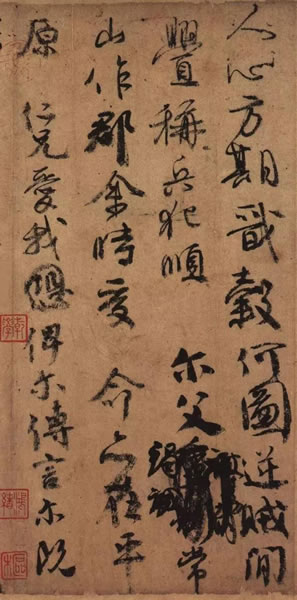 人心方期戩穀何圖逆賊間
舋稱兵犯順尒父竭誠常
山作郡余時受命亦在平
原仁兄愛我俾尒傳言尒既